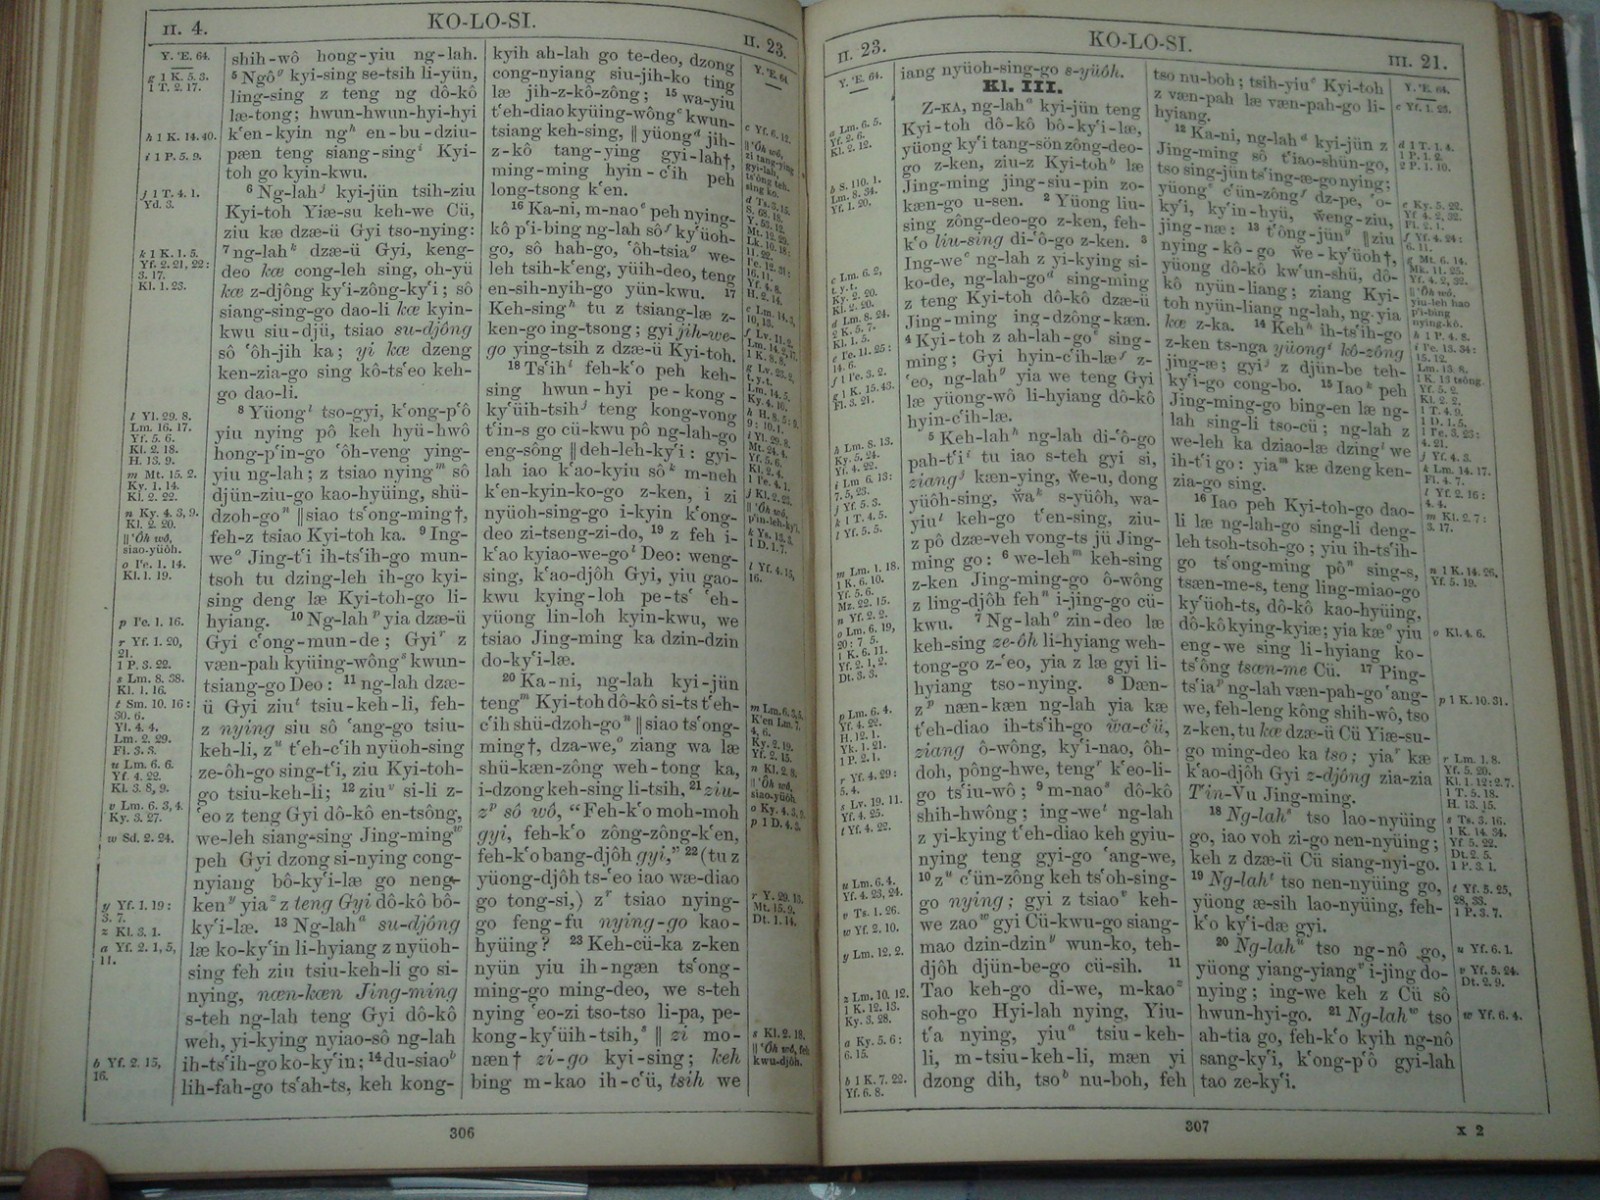 II. 4.
KO-LO-SI.
II. 23.
Y. 'E. 64.
g 1 K. 5. 3.
1 T. 2. 17.
h 1 K. 14. 40.
i 1 P. 5. 9.
j 1 T. 4. 1.
Yd. 3.
k 1 K. 1. 5.
Yf. 2. 21, 22:
3. 17.
Kl. 1. 23.
l Yl. 29. 8.
Lm. 16. 17.
Yf. 5. 6.
Kl. 2. 18.
H. 13. 9.
m Mt. 15. 2.
Ky. 1. 14.
Kl. 2. 22.
n Ky. 4. 3, 9.
Kl. 2. 20.
‖ 'Ôh wô,
siao-yüôh.
o I'e. 1. 14.
Kl. 1. 19.
p I'e. 1. 16.
r Yf. 1. 20,
21.
1 P. 3. 22.
s Lm. 8. 38.
Kl. 1. 16.
t Sm. 10. 16:
30. 6.
Yl. 4. 4.
Lm. 2. 29.
Fl. 3. 3.
u Lm. 6. 6.
Yf. 4. 22.
Kl. 3. 8, 9.
v Lm. 6. 3, 4.
Ky. 3. 27.
w Sd. 2. 24.
y Yf. 1. 19:
3. 7.
z Kl. 3. 1.
a Yf. 2. 1, 5,
11.
b Yf. 2. 15,
16.
shih-wô hong-yiu ng-lah.
5 Ngô g kyi-sing se-tsih li-yün,
ling-sing z teng ng dô-kô
læ-tong; hwun-hwun-hyi-hyi
k'en-kyin ng h en-bu-dziu-
pæn teng siang-sing i Kyi-
toh go kyin-kwu.
6 Ng-lah j kyi-jün tsih-ziu
Kyi-toh Yiæ-su keh-we Cü,
ziu kæ dzæ-ü Gyi tso-nying:
7 ng-lah k dzæ-ü Gyi, keng-
deo kæ cong-leh sing, oh-yü
kæ z-djông ky'i-zông-ky'i; sô
siang-sing-go dao-li kæ kyin-
kwu siu-djü, tsiao su-djông
sô 'ôh-jih ka; yi kæ dzeng
ken-zia-go sing kô-ts'eo keh-
go dao-li.
8 Yüong l tso-gyi, k'ong-p'ô
yiu nying pô keh hyü-hwô
hong-p'in-go 'ôh-veng ying-
yiu ng-lah; z tsiao nying m sô
djün-ziu-go kao-hyüing, shü-
dzoh-go n ‖siao ts'ong-ming†,
feh-z tsiao Kyi-toh ka. 9 Ing-
we o Jing-t'i ih-ts'ih-go mun-
tsoh tu dzing-leh ih-go kyi-
sing deng læ Kyi-toh-go li-
hyiang. 10 Ng-lah p yia dzæ-ü
Gyi c'ong-mun-de; Gyi r z
væn-pah kyüing-wông s kwun-
tsiang-go Deo: 11 ng-lah dzæ-
ü Gyi ziu t tsiu-keh-li, feh-
z nying siu sô 'ang-go tsiu-
keh-li, z u t'eh-c'ih nyüoh-sing
ze-ôh-go sing-t'i, ziu Kyi-toh-
go tsiu-keh-li; 12 ziu v si-li z-
'eo z teng Gyi dô-kô en-tsông,
we-leh siang-sing Jing-ming w
peh Gyi dzong si-nying cong-
nyiang bô-ky'i-læ go neng-
ken y yia z z teng Gyi dô-kô bô-
ky'i-læ. 13 Ng-lah a su-djông
læ ko-ky'in li-hyiang z nyüoh-
sing feh ziu tsiu-keh-li go si-
nying, næn-kæn Jing-ming
s-teh ng-lah teng Gyi dô-kô
weh, yi-kying nyiao-sô ng-lah
ih-ts'ih-go ko-ky'in; 14 du-siao b
lih-fah-go ts'ah-ts, keh kong-
kyih ah-lah go te-deo, dzong
cong-nyiang siu-jih-ko ting
læ jih-z-kô-zông; 15 wa-yiu
t'eh-diao kyüing-wông c kwun-
tsiang keh-sing, ‖ yüong d jih-
z-kô tang-ying gyi-lah†,
ming-ming hyin-c'ih peh
long-tsong k'en.
16 Ka-ni, m-nao e peh nying-
kô p'i-bing ng-lah sô f ky'üoh-
go, sô hah-go, 'ôh-tsia g we-
leh tsih-k'eng, yüih-deo, teng
en-sih-nyih-go yün-kwu. 17
Keh-sing h tu z tsiang-læ z-
ken-go ing-tsong; gyi jih-we-
go ying-tsih z dzæ-ü Kyi-toh.
18 Ts'ih i feh-k'o peh keh-
sing hwun-hyi pe-kong-
ky'üih-tsih j teng kong-vong
t'in-s go cü-kwu pô ng-lah-go
eng-sông ‖ deh-leh-ky'i: gyi-
lah iao k'ao-kyiu sô k m-neh
k'en-kyin-ko-go z-ken, i zi
nyüoh-sing-go i-kyin k'ong-
deo zi-tseng-zi-do, 19 z feh i-
k'ao kyiao-we-go l Deo: weng-
sing, k'ao-djôh Gyi, yiu gao-
kwu kying-loh pe-ts' 'eh-
yüong lin-loh kyin-kwu, we
tsiao Jing-ming ka dzin-dzin
do-ky'i-læ.
20 Ka-ni, ng-lah kyi-jün
teng m Kyi-toh dô-kô si-ts t'eh-
c'ih shü-dzoh-go n ‖siao ts'ong-
ming†, dza-we, o ziang wa læ
shü-kæn-zông weh-tong ka,
i-dzong keh-sing li-tsih, 21 ziu-
z p sô wô, “Feh-k'o moh-moh
gyi, feh-k'o zông-zông-k'en,
feh-k'o bang-djôh gyi,” 22 (tu z
yüong-djôh ts-'eo iao wæ-diao
go tong-si,) z r tsiao nying-
go feng-fu nying-go kao-
hyüing? 23 Keh-cü-ka z-ken
nyün yiu ih-ngæn ts'ong-
ming-go ming-deo, we s-teh
nying 'eo-zi tso-tso li-pa, pe-
kong-ky'üih-tsih, s ‖ zi mo-
næn† zi-go kyi-sing; keh
bing m-kao ih-c'ü, tsih we
Y. 'E. 64.
c Yf. 6. 12.
‖ 'Ôh wô,
zi tang-ying
gyi-lah,
ts'ông teh-
sing ko.
l Yf. 4. 15,
16.
r Y. 29. 13.
Mt. 15. 9.
Dt. 1. 14.
s Kl. 2. 18.
‖ 'Ôh wô, feh
kwu-djôh.
306
II. 23.
KO-LO-SI.
III. 21.
Y. 'E. 64.
a Lm. 6. 5.
Yf. 2. 6.
Kl. 2. 12.
b S. 110. 1.
Lm. 8. 34.
Yf. 1. 20.
c Lm. 6. 2,
t. y. t.
Ky. 2. 20.
Kl. 2. 20.
d Lm. 8. 24.
2 K. 5. 7.
Kl. 1. 5.
e I'e. 11. 25:
14. 6.
f 1 I'e. 3. 2.
g 1 K. 15. 43.
Fl. 3. 21.
h Lm. 8. 13.
Ky. 5. 24.
Yf. 4. 22.
i Lm. 6. 13:
7. 5, 23.
j Yf. 5. 3.
k 1 T. 4. 5.
l Yf. 5. 5.
m Lm. 1. 18.
1 K. 6. 10.
Yf. 5. 6.
Mz. 22. 15.
n Yf. 2. 2.
o Lm. 6. 19,
20: 7. 5.
1 K. 6. 11.
Yf. 2. 1, 2.
Dt. 3. 3.
p Lm. 6. 4.
Yf. 4. 22.
H. 12. 1.
Yk. 1. 21.
1 P. 2. 1.
r Yf. 4. 29:
5. 4.
s Lv. 19. 11.
Yf. 4. 25.
t Yf. 4. 22.
u Lm. 6. 4.
Yf. 4. 23, 24.
v Ts. 1. 26.
w Yf. 2. 10.
y Lm. 12. 2.
z Lm. 10. 12.
1 K. 12. 13.
Ky. 3. 28.
a Ky. 5. 6:
6. 15.
b 1 K. 7. 22.
Yf. 6. 8.
iang nyüoh-sing-go s-yüôh.
Kl. III.
Z-KA, ng-lah a kyi-jün teng
Kyi-toh dô-kô bô-ky'i-læ,
yüong ky'i tang-sön zông-deo-
go z-ken, ziu-z Kyi-toh b læ
Jing-ming jing-siu-pin zo-
kæn-go u-sen. 2 Yüong liu-
sing zông-deo-go z-ken, feh-
k'o liu-sing di-'ô-go z-ken. 3
Ing-we c ng-lah z yi-kying si-
ko-de, ng-lah-go d sing-ming
z teng Kyi-toh dô-kô dzæ-ü
Jing-ming ing-dzông-kæn.
4 Kyi-toh z ah-lah-go e sing-
ming; Gyi hyin-c'ih-læ f z-
'eo, ng-lah g yia we teng Gyi
læ yüong-wô li-hyiang dô-kô
hyin-c'ih-læ.
5 Keh-lah h ng-lah di-'ô-go
pah-t'i i tu iao s-teh gyi si,
ziang j kæn-ying, we-u, dong
yüôh-sing, wa k s-yüôh, wa-
yiu l keh-go t'en-sing, ziu-
z pô dzæ-veh vong-ts jü Jing-
ming go: 6 we-leh m keh-sing
z-ken Jing-ming-go ô-wông
z ling-djôh feh n i-jing-go cü-
kwu. 7 Ng-lah o zin-deo læ
keh-sing ze-ôh li-hyiang weh-
tong-go z-'eo, yia z læ gyi li-
hyiang tso-nying. 8 Dæn-
z p næn-kæn ng-lah yia kæ
t'eh-diao ih-ts'ih-go wa-c'ü,
ziang ô-wông, ky'i-nao, ôh-
doh, pông-hwe, teng r k'eo-li-
go ts'iu-wô; 9 m-nao s dô-kô
shih-hwông; ing-we t ng-lah
z yi-kying t'eh-diao keh gyiu-
nying teng gyi-go 'ang-we,
10 z u c'ün-zông keh ts'oh-sing-
go nying; gyi z tsiao v keh-
we zao w gyi Cü-kwu-go siang-
mao dzin-dzin y wun-ko, teh-
djôh djün-be-go cü-sih. 11
Tao keh-go di-we, m-kao z
soh-go Hyi-lah nying, Yiu-
t'a nying, yiu a tsiu-keh-
li, m-tsiu-keh-li, mæn yi
dzong dih, tso b nu-boh, feh
tso nu-boh; tsih-yiu c Kyi-toh
z væn-pah læ væn-pah-go li-
hyiang.
12 Ka-ni, ng-lah d kyi-jün z
Jing-ming sô t'iao-shün-go,
tso sing-jün ts'ing-æ-go nying;
yüong e c'ün-zông f dz-pe, 'o-
ky'i, ky'in-hyü, weng-ziu,
jing-næ: 13 t'ông-jün g ‖ziu
nying-kô-go we-ky'üoh†,
yüong dô-kô kw'un-shü, dô-
kô nyün-liang; ziang Kyi-
toh nyün-liang ng-lah, ng-yia
kæ z-ka. 14 Keh h ih-ts'ih-go
z-ken ts-nga yüong i kô-zông
jing-æ; gyi j z djün-be teh-
ky'i-go cong-bo. 15 Iao k peh
Jing-ming-go bing-en læ ng-
lah sing-li tso-cü; ng-lah z
we-leh ka dziao-læ dzing l we
ih-t'i go: yia m kæ dzeng ken-
zia-go sing.
16 Iao peh Kyi-toh-go dao-
li læ ng-lah-go sing-li deng-
leh tsoh-tsoh-go; yiu ih-ts'ih-
go ts'ong-ming pô n sing-s,
tsæn-me-s, teng ling-miao-go
ky'üoh-ts, dô-kô kao-hyüing,
dô-kô kying-kyiæ; yia kæ o yiu
eng-we sing li-hyiang ko-
ts'ông tsæn-me Cü. 17 Ping-
ts'ia p ng-lah væn-pah-go 'ang-
we, feh-leng kông shih-wô, tso
z-ken, tu kæ dzæ-ü Cü Yiæ-su-
go ming-deo ka tso; yia r kæ
k'ao-djôh Gyi z-djông zia-zia
T'in-Vu Jing-ming.
18 Ng-lah s tso lao-nyüing
go, iao voh zi-go nen-nyüing;
keh z dzæ-ü Cü siang-nyi-go.
19 Ng-lah t tso nen-nyüing go,
yüong æ-sih lao-nyüing, feh-
k'o ky'i-dæ gyi.
20 Ng-lah u tso ng-nô go,
yüong yiang-yiang v i-jing do-
nying; ing-we keh z Cü sô
hwun-hyi-go. 21 Ng-lah w tso
ah-tia go, feh-k'o kyih ng-nô
sang-ky'i, k'ong-p'ô gyi-lah
tao ze-ky'i.
Y. 'E. 64.
c Yf. 1. 23.
d 1 T. 1. 4.
1 P. 1. 2.
2 P. 1. 10.
e Ky. 5. 22.
Yf. 4. 2, 32.
Fl. 2. 1.
f Yf. 4. 2, 24:
6. 11.
g Mt. 6. 14.
Mk. 11. 25.
Yf. 4. 2, 32.
‖ 'Ôh wô,
yiu-leh hao
p'i-bing
nying-kô.
h 1 P. 4. 8.
i I'e. 13. 34:
15. 12.
Lm. 13. 8.
1 K. 13 tsông.
Yf. 5. 2.
Kl. 2. 2.
1 T. 4. 9.
1 D. 1. 5.
1 I'e. 3. 23:
4. 21.
j Yf. 4. 3.
k Lm. 14. 17.
Fl. 4. 7.
l Yf. 2. 16:
4. 4.
m Kl. 2. 7:
3. 17.
n 1 K. 14. 26.
Yf. 5. 19.
o Kl. 4. 6.
p 1 K. 10. 31.
r Lm. 1. 8.
Yf. 5. 20.
Kl. 1. 12: 2. 7.
1 T. 5. 18.
H. 13. 15.
s Ts. 3. 16.
1 K. 14. 34.
Yf. 5. 22.
Dt. 2. 5.
1 P. 3. 1.
t Yf. 5. 25,
28, 33.
1 P. 3. 7.
u Yf. 6. 1.
v Yf. 5. 24.
Dt. 2. 9.
w Yf. 6. 4.
307
X 2